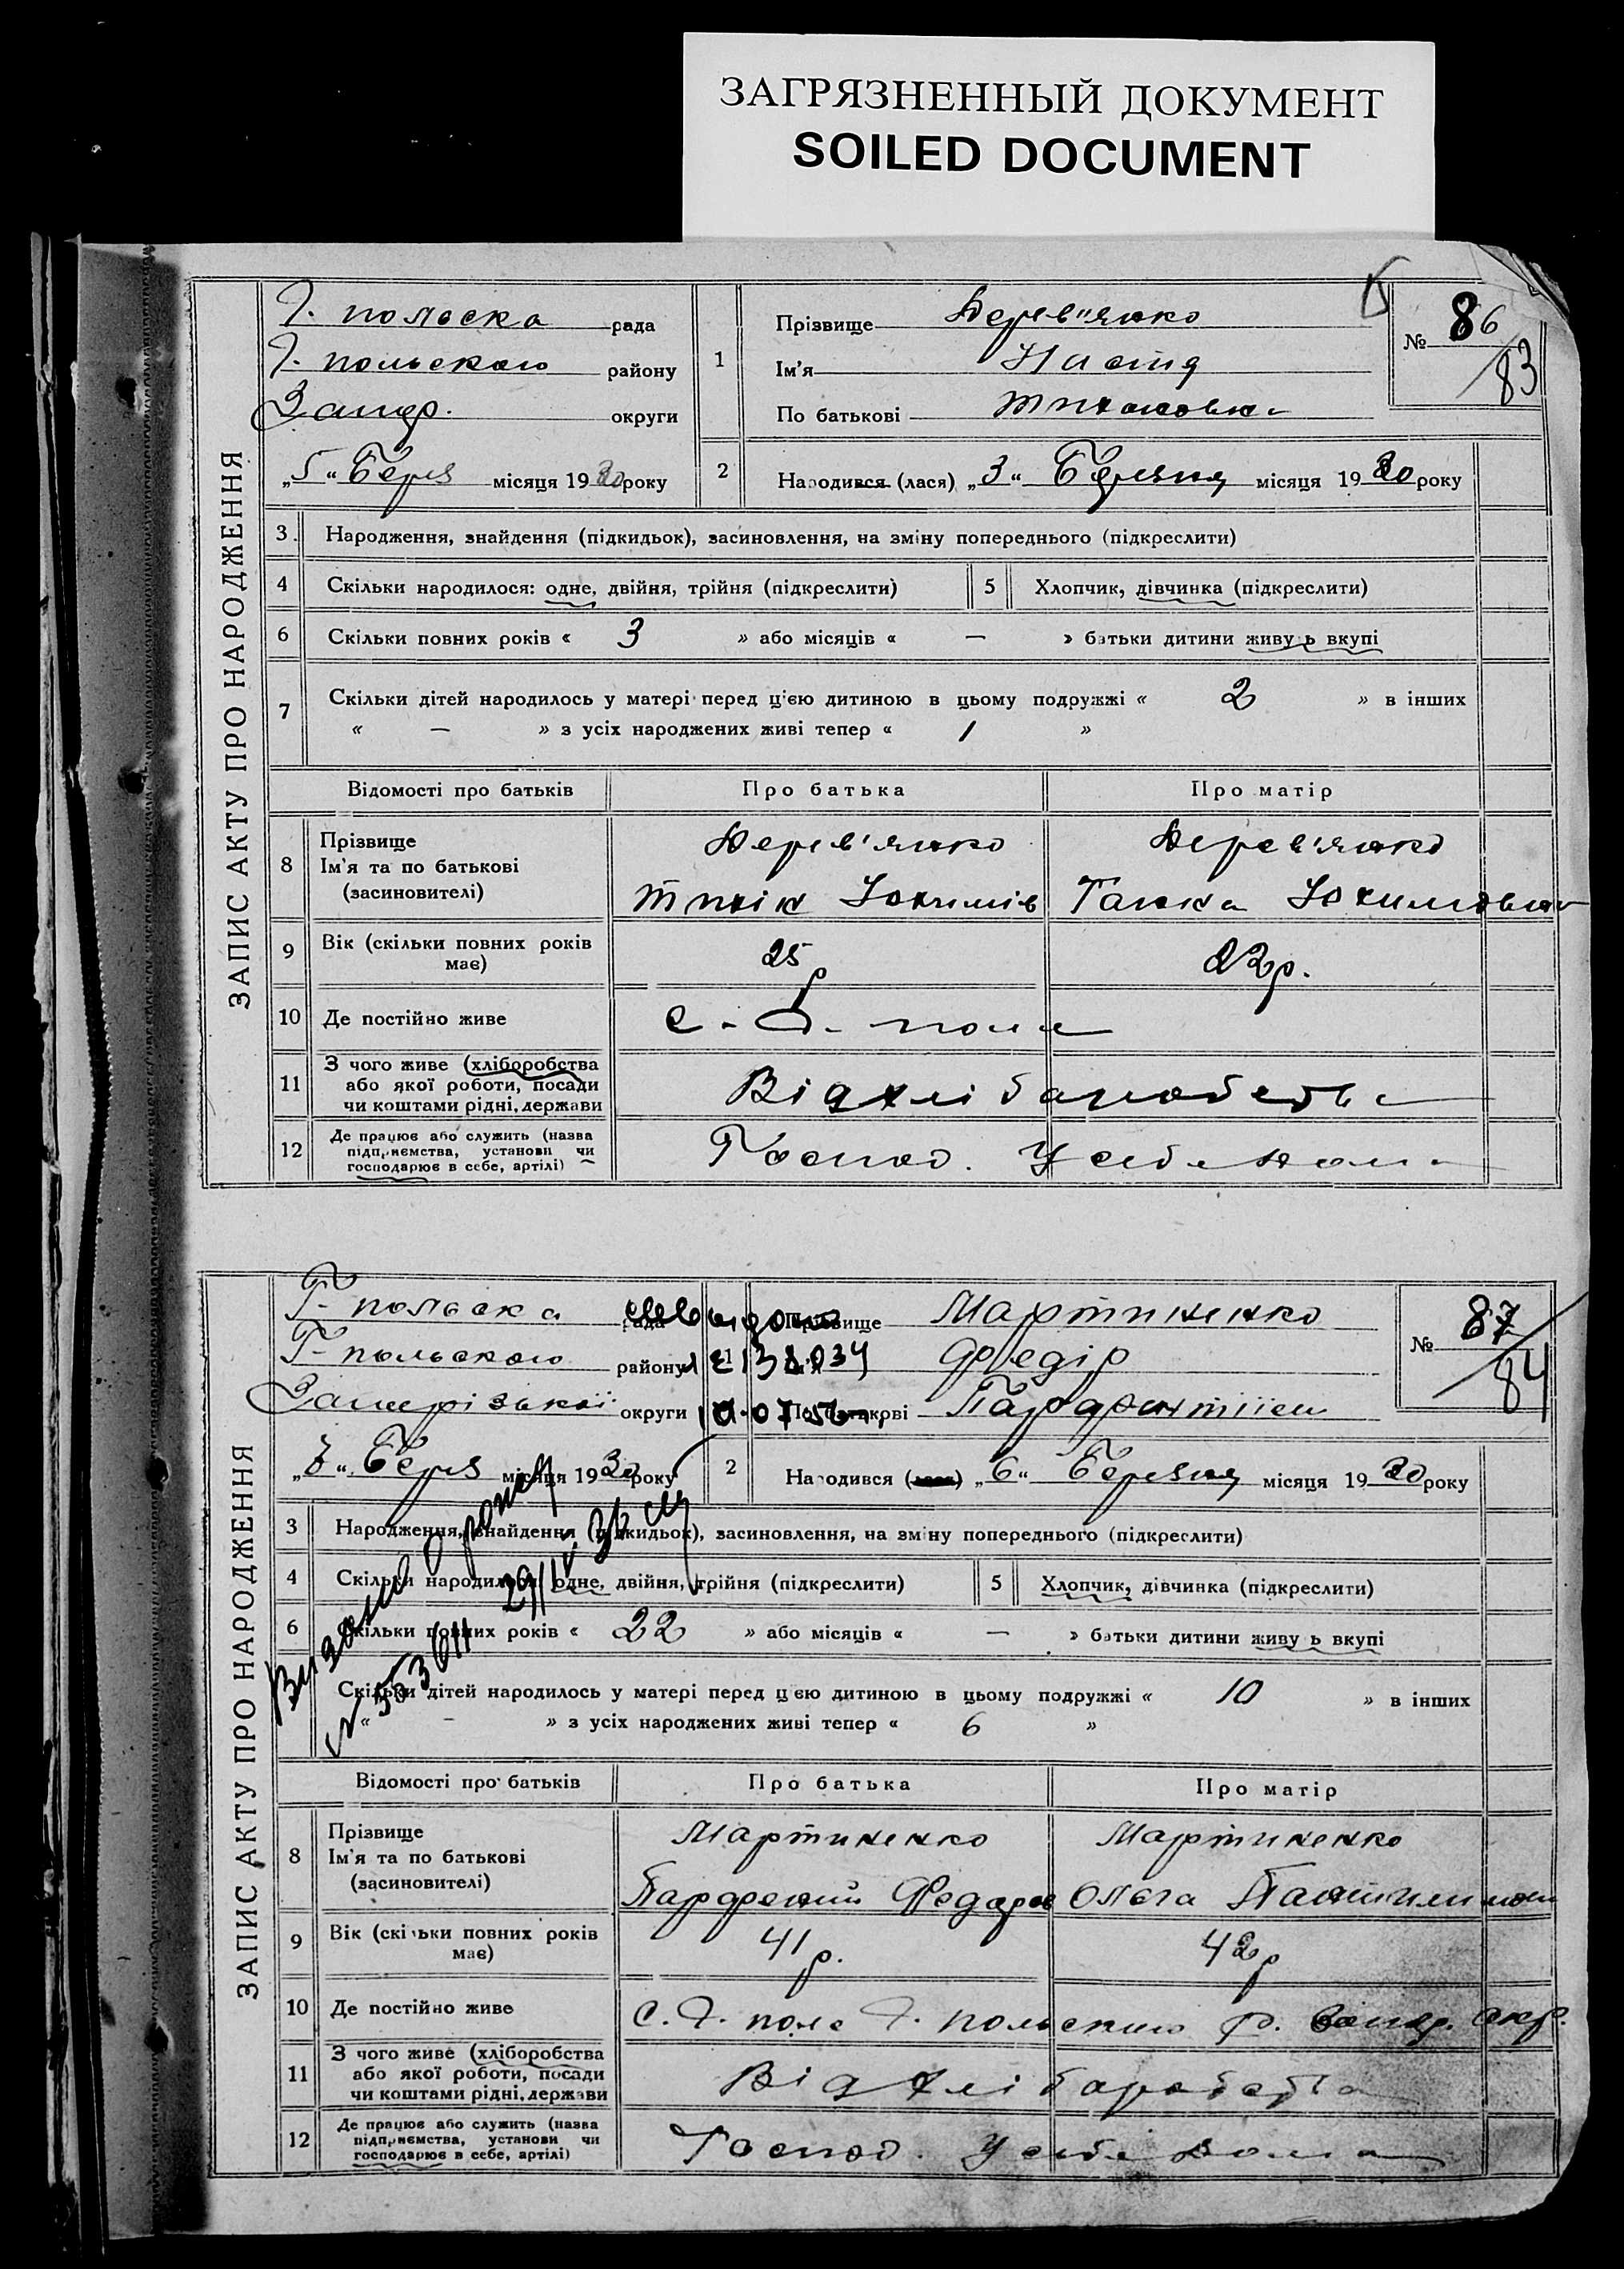 ЗАГРЯЗНЕННЫЙ ДОКУМЕНТ
SOILED DOCUMENT
ЗАПИС АКТУ ПРО НАРОДЖЕННЯ
Г. польска рада
Г. польского району
Запор. округи
„5“ Берез місяця 1930 року
1
Прізвище Дерев"янко
Ім'я Настя
По батькові
№ 86
83
2
Народився (лася) „3“ Березня місяця 1930 року
3. Народження, знайдення (підкидьок), засиновлення, на зміну попереднього (підкреслити)
4 Скільки народилося: одне, двійня, трійня (підкреслити)
5 Хлопчик, дівчинка (підкреслити)
6 Скільки повних років « 3 » або місяців « — » батьки дитини живу ь вкупі
7 Скільки дітей народилось у матері перед ц'єю дитиною в цьому подружжі « 2 » в інших
« — » з усіх народжених живі тепер « 1 »
Відомості про батьків Про батька Про матір
8 Прізвище
Ім'я та по батькові
(засиновителі)
Дерев'янко Дерев'янко
Юхимів Ганна Юхимовна
9 Вік (скільки повних років
має)
25 р 22 р.
10 Де постійно живе
с. Г. поле
11 З чого живе (хліборобства
або якої роботи, посади
чи коштами рідні, держави
Від хліборобства
12 Де працює або служить (назва
підприємства, установи чи
господарює в себе, артілі)
Господ. У себе дома
ЗАПИС АКТУ ПРО НАРОДЖЕННЯ
Г- польска рада
Г- польского району
Запорізької округи
„7“ Берез місяця 1930 року
1
Прізвище Мартиненко
Федір
По батькові
№ 87
84
2 Народився (лася) „6“ Березня місяця 1930 року
3 Народження, знайдення (підкидьок), засиновлення, на зміну попереднього (підкреслити)
4 Скільки народилося: одне, двійня, трійня (підкреслити)
5 Хлопчик, дівчинка (підкреслити)
6 Скільки повних років « 22 » або місяців « — » батьки дитини живу ь вкупі
Скільки дітей народилось у матері перед ц єю дитиною в цьому подружжі « 10 » в інших
« – » з усіх народжених живі тепер « 6 »
Відомості про батьків Про батька Про матір
8 Прізвище
Ім'я та по батькові
(засиновителі)
Мартиненко Мартиненко
Парфений Федоров Ольга
9 Вік (скільки повних років
має)
41 р. 42 р
10 Де постійно живе
с. Г. поле Г. польского р. Запор. окр.
11 З чого живе (хліборобства
або якої роботи, посади
чи коштами рідні, держави
Від хліборобства
12 Де працює або служить (назва
підприємства, установи чи
господарює в себе, артілі)
Господ. У себе дома